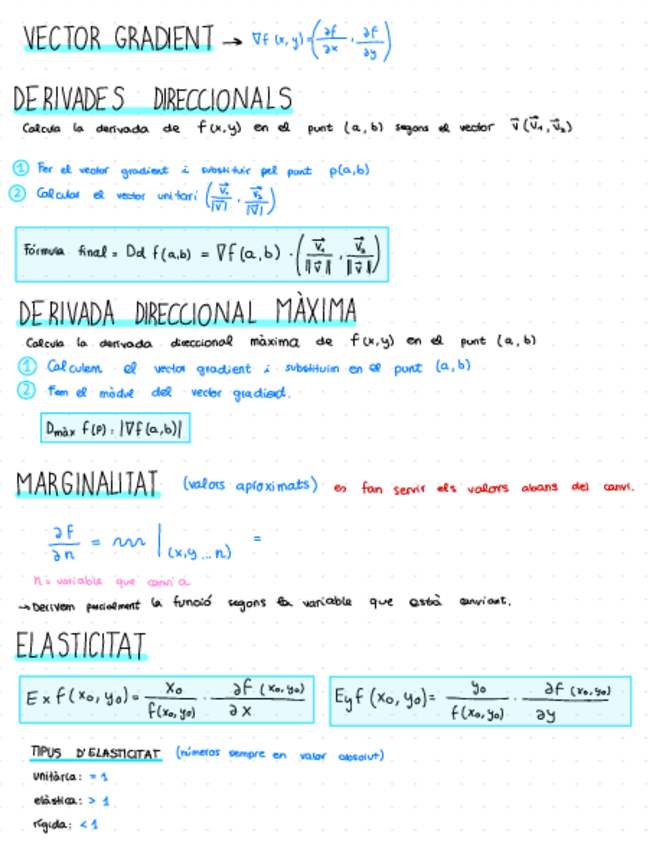 VECTOR GRADIENT → ∇f (x, y) = (∂f/∂x, ∂f/∂y)
DERIVADES DIRECCIONALS
Calcula la derivada de f(x,y) en el punt (a, b) segons el vector v⃗ (v⃗₁, v⃗₂)
① Fer el vector gradient i substituir pel punt p(a,b)
② Calcular el vector unitari (v⃗₁/|v⃗|, v⃗₂/|v⃗|)
Fórmula final = Dd f(a,b) = ∇f(a,b) · (v⃗₁/||v⃗||, v⃗₂/||v⃗||)
DERIVADA DIRECCIONAL MÀXIMA
Calcula la derivada direccional màxima de f(x,y) en el punt (a,b)
① Calculem el vector gradient i substituïm en el punt (a,b)
② Fem el mòdul del vector gradient.
Dmàx f(p) = |∇f(a,b)|
MARGINALITAT (valors aproximats) es fan servir els valors abans del canvi.
∂f/∂n = |(x,y...n) =
n = variable que canvia
→ Derivem parcialment la funció segons la variable que està canviant.
ELASTICITAT
Exf(x₀,y₀) = x₀/f(x₀,y₀) · ∂f(x₀,y₀)/∂x
Eyf(x₀,y₀) = y₀/f(x₀,y₀) · ∂f(x₀,y₀)/∂y
TIPUS D'ELASTICITAT (números sempre en valor absolut)
unitària: = 1
elàstica: > 1
rígida: < 1